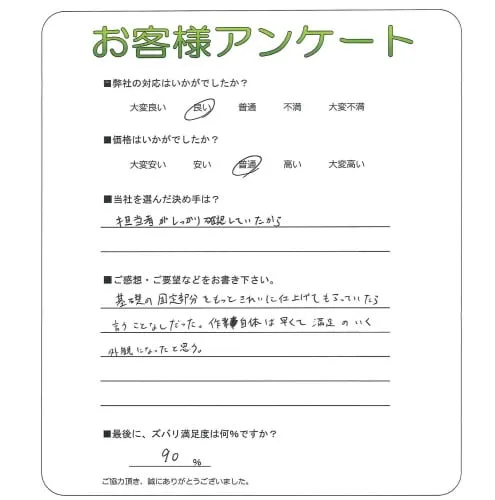 お客様アンケート
■弊社の対応はいかがでしたか？
大変良い 良い 普通 不満 大変不満
■価格はいかがでしたか？
大変安い 安い 普通 高い 大変高い
■当社を選んだ決め手は？
担当者がしっかり確認していたから
■ご感想・ご要望などをお書き下さい。
基礎の固定部分をもっときれいに仕上げてもらっていたら
言うことなしだった。作業自体は早くて満足のいく
外観になったと思う。
■最後に、ズバリ満足度は何％ですか？
90 ％
ご協力頂き、誠にありがとうございました。